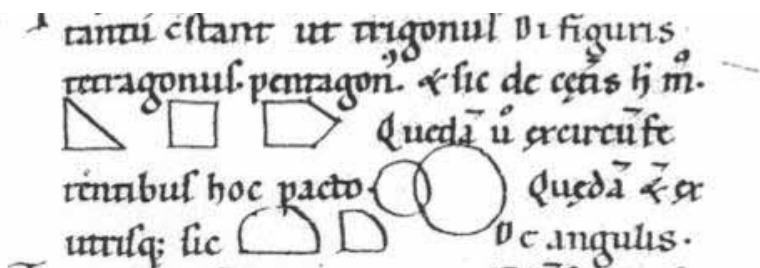 tantū c̄stant ut trigonuſ Di figuris
tetragonuſ. pentagonꝰ. & ſic de cęt̄is hͥ mͦ.
Quedā uͦ ex circūfe
rentibuſ hoc pacto. Quędā & ex
utriſq; ſic De angulis.